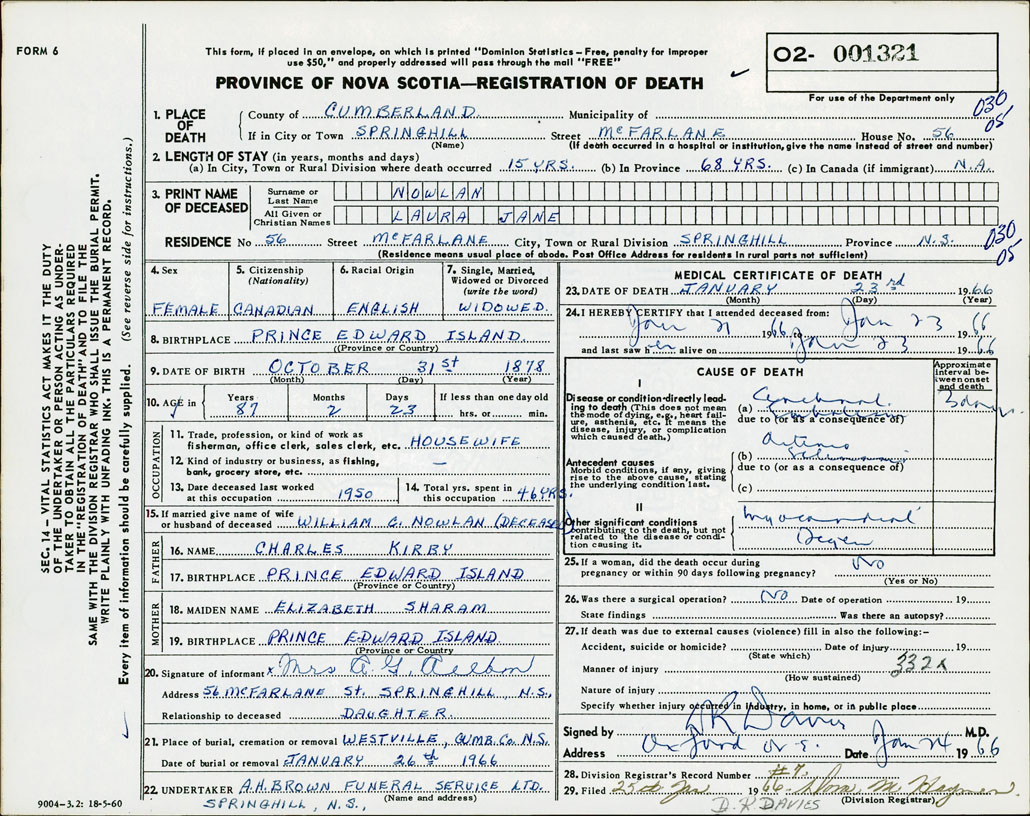 FORM 6
This form, if placed in an envelope, on which is printed "Dominion Statistics – Free, penalty for improper
use $50," and properly addressed will pass through the mail "FREE"
PROVINCE OF NOVA SCOTIA—REGISTRATION OF DEATH
O2- 001321
For use of the Department only
SEC. 14 – VITAL STATISTICS ACT MAKES IT THE DUTY
OF THE UNDERTAKER OR PERSON ACTING AS UNDER-
TAKER TO OBTAIN ALL THE PARTICULARS REQUIRED
IN THE "REGISTRATION OF DEATH" AND TO FILE THE
SAME WITH THE DIVISION REGISTRAR WHO SHALL ISSUE THE BURIAL PERMIT.
WRITE PLAINLY WITH UNFADING INK. THIS IS A PERMANENT RECORD.
Every item of information should be carefully supplied. (See reverse side for instructions.)
1. PLACE OF DEATH
County of CUMBERLAND Municipality of 030
If in City or Town SPRINGHILL Street McFARLANE House No. 56 05
(Name) (If death occurred in a hospital or institution, give the name instead of street and number)
2. LENGTH OF STAY (in years, months and days)
(a) In City, Town or Rural Division where death occurred 15 YRS. (b) In Province 68 YRS. (c) In Canada (if immigrant) N.A.
3. PRINT NAME OF DECEASED
Surname or Last Name NOWLAN
All Given or Christian Names LAURA JANE
RESIDENCE No 56 Street McFARLANE City, Town or Rural Division SPRINGHILL Province N.S. 030 05
(Residence means usual place of abode. Post Office Address for residents in rural parts not sufficient)
4. Sex FEMALE
5. Citizenship (Nationality) CANADIAN
6. Racial Origin ENGLISH
7. Single, Married, Widowed or Divorced (write the word) WIDOWED.
8. BIRTHPLACE PRINCE EDWARD ISLAND
((Province or Country)
9. DATE OF BIRTH OCTOBER 31st 1878
(Month) (Day) (Year)
10. AGE in Years 87 Months 2 Days 23 If less than one day old hrs. or min.
OCCUPATION
11. Trade, profession, or kind of work as
fisherman, office clerk, sales clerk, etc. HOUSEWIFE
12. Kind of industry or business, as fishing,
bank, grocery store, etc. —
13. Date deceased last worked
at this occupation 1950
14. Total yrs. spent in
this occupation 46 YRS.
15. If married give name of wife
or husband of deceased WILLIAM C. NOWLAN (DECEASED)
FATHER
16. NAME CHARLES KIRBY
17. BIRTHPLACE PRINCE EDWARD ISLAND
(Province or Country)
MOTHER
18. MAIDEN NAME ELIZABETH SHARAM
19. BIRTHPLACE PRINCE EDWARD ISLAND
(Province or Country)
20. Signature of informant x Mrs A. G.
Address 56 McFARLANE St. SPRINGHILL N.S.
Relationship to deceased DAUGHTER.
21. Place of burial, cremation or removal WESTVILLE, CUMB. Co. N.S.
Date of burial or removal JANUARY 26th 1966
22. UNDERTAKER A.H. BROWN FUNERAL SERVICE LTD.
(Name and address)
SPRINGHILL, N.S.,
9004–3.2: 18-5-60
MEDICAL CERTIFICATE OF DEATH
23. DATE OF DEATH JANUARY 23rd 1966
(Month) (Day) (Year)
24. I HEREBY CERTIFY that I attended deceased from:
Jan 21 1966 to Jan 23 66
and last saw her alive on Jan 23 1966
CAUSE OF DEATH
Approximate interval between onset and death
I
Disease or condition directly leading to death (This does not mean the mode of dying, e.g., heart failure, asthenia, etc. It means the disease, injury, or complication which caused death.)
(a) Cerebral Embolism 3 days
due to (or as a consequence of)
Antecedent causes
Morbid conditions, if any, giving rise to the above cause, stating the underlying condition last.
(b) Arterio Sclerosis
due to (or as a consequence of)
(c)
II
Other significant conditions
contributing to the death, but not related to the disease or condition causing it.
Myocardial Degen
25. If a woman, did the death occur during
pregnancy or within 90 days following pregnancy? No
(Yes or No)
26. Was there a surgical operation? No Date of operation 19
State findings Was there an autopsy?
27. If death was due to external causes (violence) fill in also the following:–
Accident, suicide or homicide? Date of injury 19
(State which)
Manner of injury 332x
(How sustained)
Nature of injury
Specify whether injury occurred in industry, in home, or in public place
Signed by DR Davies M.D.
Address Oxford N.S. Date Jan 24 1966
28. Division Registrar's Record Number #7.
29. Filed 25th Jan 1966
(Division Registrar)
D.R DAVIES